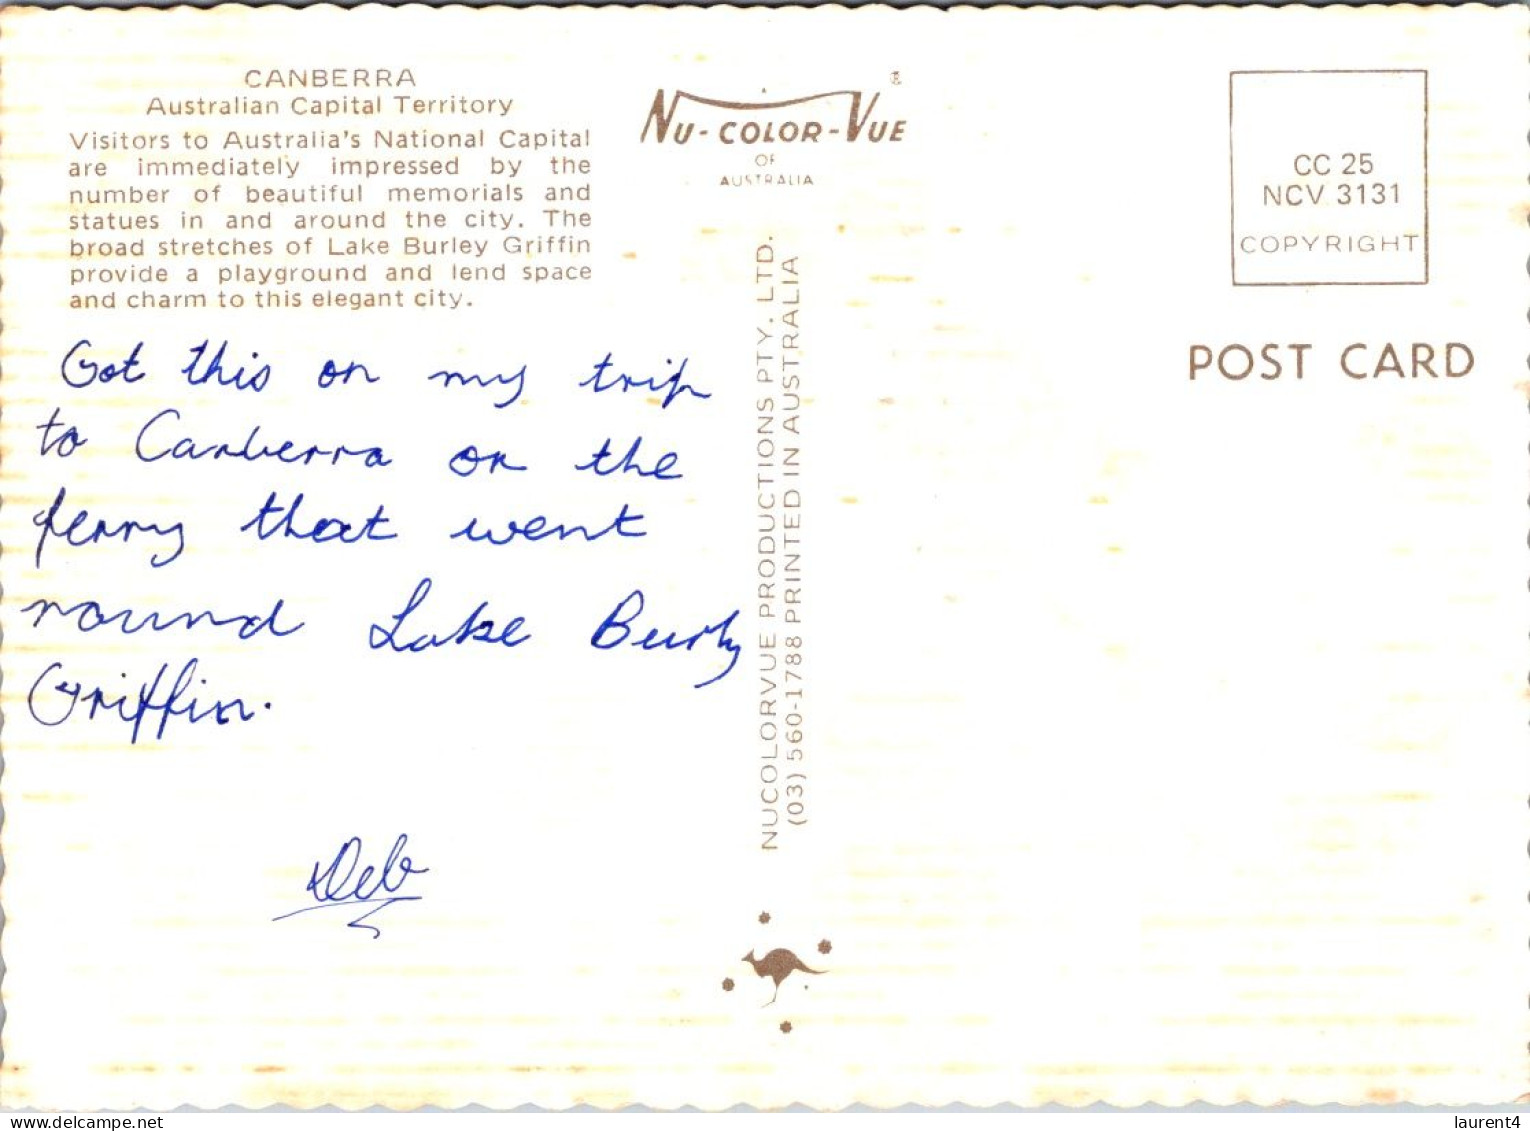 CANBERRA
Australian Capital Territory
Visitors to Australia's National Capital
are immediately impressed by the
number of beautiful memorials and
statues in and around the city. The
broad stretches of Lake Burley Griffin
provide a playground and lend space
and charm to this elegant city.
Got this on my trip
to Canberra on the
ferry that went
round Lake Burly
Griffin.
Deb
NU-COLOR-VUE
®
OF
AUSTRALIA
NUCOLORVUE PRODUCTIONS PTY. LTD.
(03) 560-1788 PRINTED IN AUSTRALIA
CC 25
NCV 3131
COPYRIGHT
POST CARD
delcampe.net
laurent4